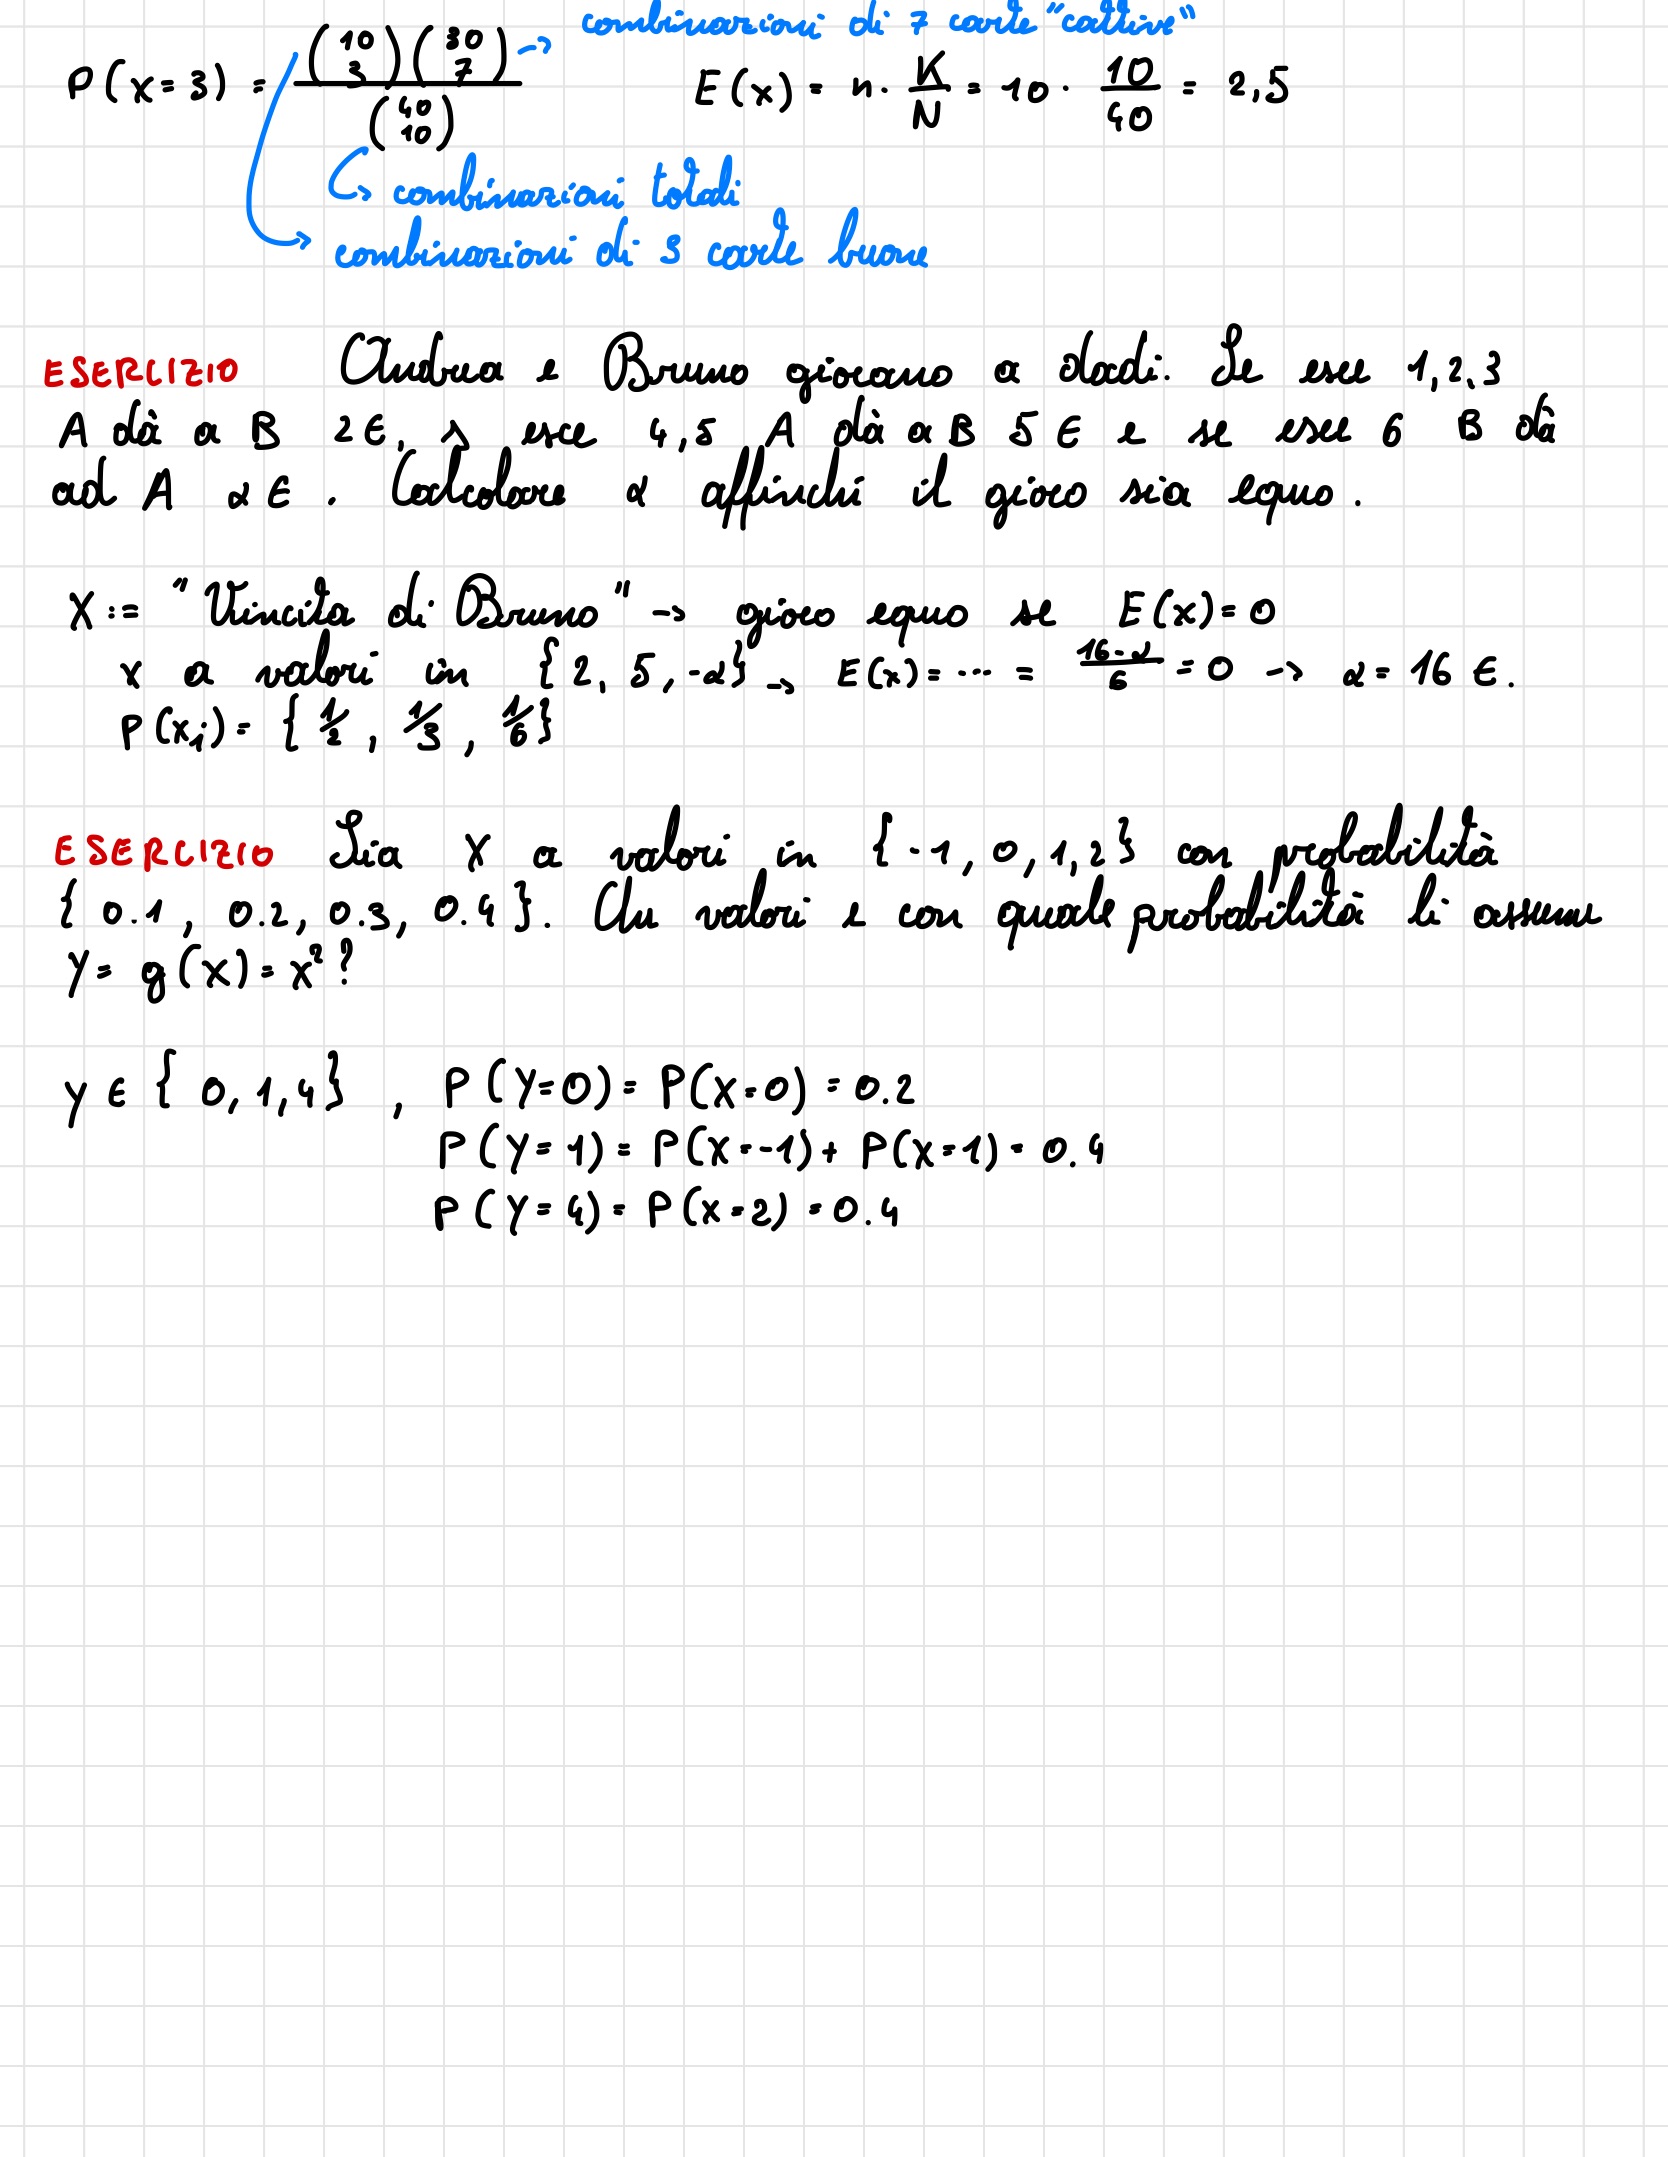 combinazioni di 7 carte "cattive"
P(x=3) = \frac{\binom{10}{3}\binom{30}{7}}{\binom{40}{10}} → E(x) = n · \frac{K}{N} = 10 · \frac{10}{40} = 2,5
↳ combinazioni totali
→ combinazioni di 3 carte buone
ESERCIZIO Andrea e Bruno giocano a dadi. Se esce 1,2,3
A dà a B 2€, s esce 4,5 A dà a B 5€ e se esce 6 B dà
ad A α€. Calcolare α affinché il gioco sia equo.
X:= "Vincita di Bruno" → gioco equo se E(x)=0
x a valori in {2, 5, -α} → E(x) = ... = \frac{16-α}{6} = 0 → α = 16 €.
P(x_i) = {1/2, 1/3, 1/6}
ESERCIZIO Sia X a valori in {-1, 0, 1, 2} con probabilità
{0.1, 0.2, 0.3, 0.4}. Che valori e con quale probabilità li assume
Y = g(x) = x²?
y ∈ {0,1,4}, P(Y=0) = P(X=0) = 0.2
P(Y=1) = P(X=-1) + P(X=1) = 0.4
P(Y=4) = P(x=2) = 0.4